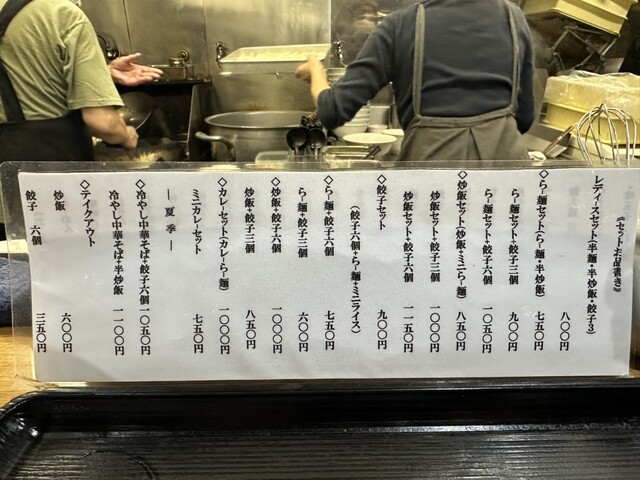 《セットお品書き》
レディースセット(半麺・半炒飯・餃子3)
八〇〇円
◇らー麺セット(らー麺・半炒飯) 七五〇円
らー麺セット+餃子三個 九〇〇円
らー麺セット+餃子六個 一〇五〇円
◇炒飯セット(炒飯+ミニらー麺) 八五〇円
炒飯セット+餃子三個 一〇〇〇円
炒飯セット+餃子六個 一一五〇円
◇餃子セット 九〇〇円
(餃子六個+らー麺+ミニライス)
◇らー麺+餃子六個 七五〇円
らー麺+餃子三個 六〇〇円
◇炒飯+餃子六個 一〇〇〇円
炒飯+餃子三個 八五〇円
◇カレーセット(カレー・らー麺) 一〇〇〇円
ミニカレーセット 七五〇円
― 夏 季 ―
◇冷やし中華そば+餃子六個 一〇五〇円
冷やし中華そば+半炒飯 一一〇〇円
◇テイクアウト
炒飯 六〇〇円
餃子 六個 三五〇円